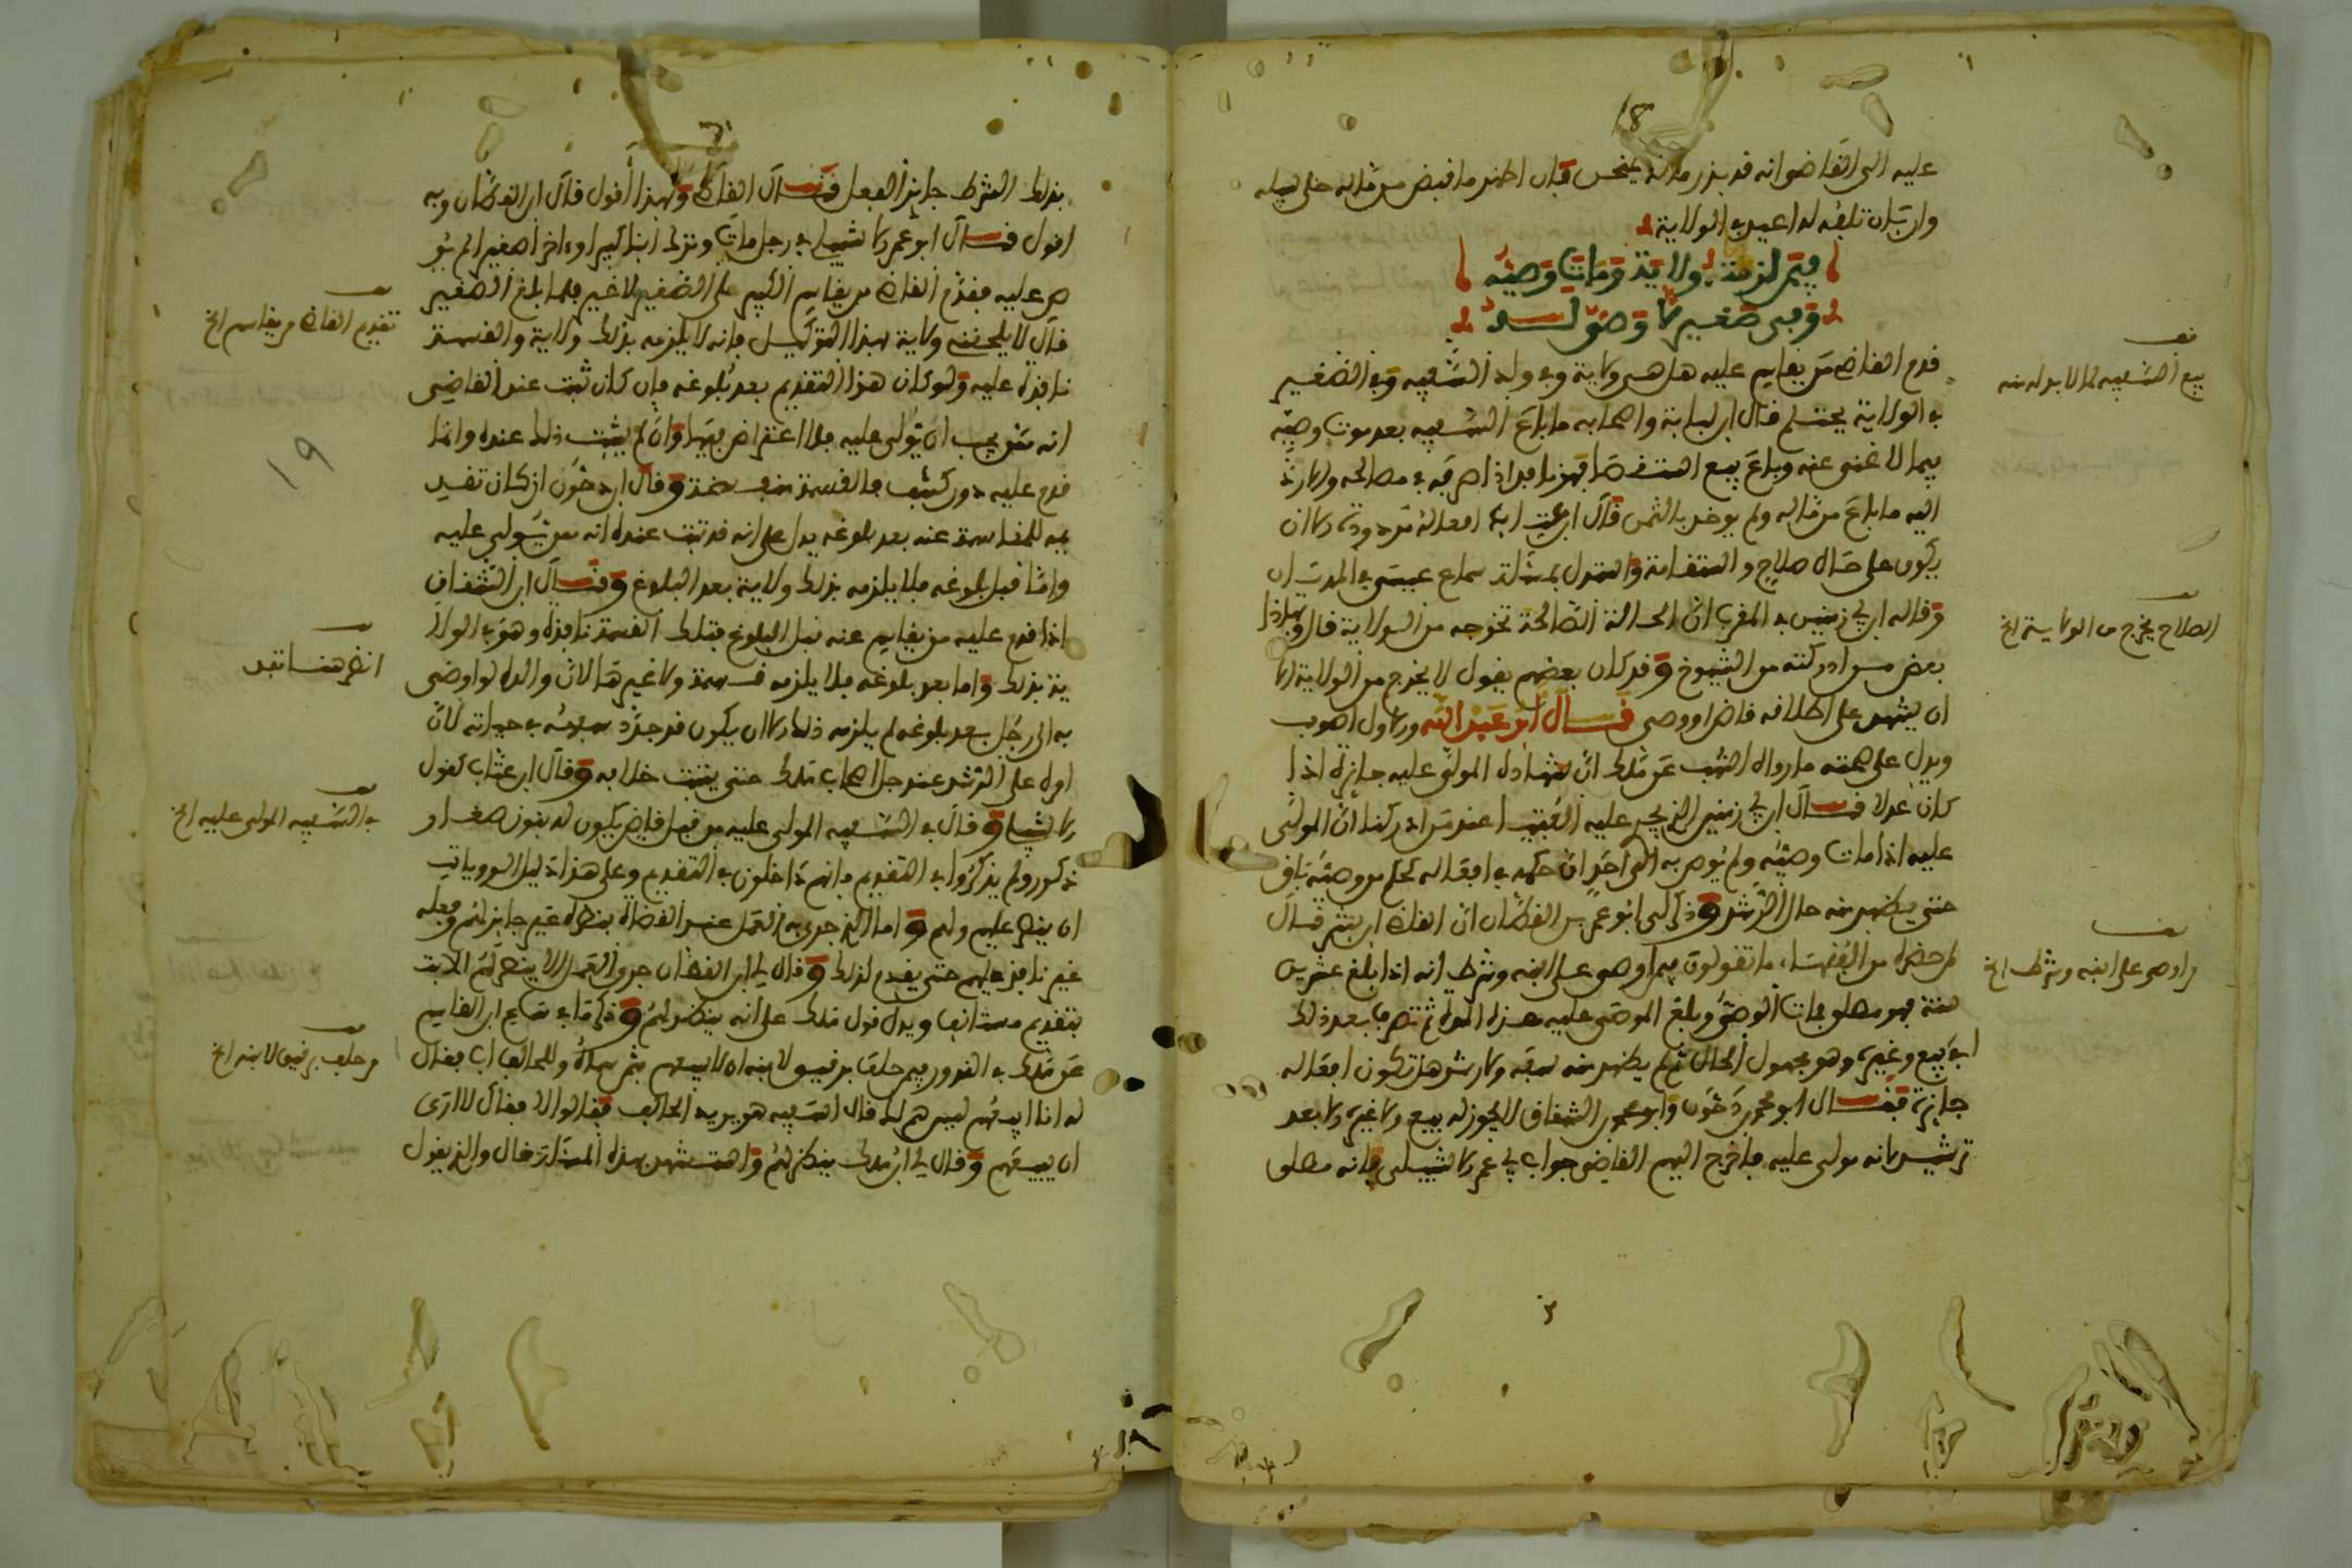 18
عليه الى القاضي انه قد بذر ماله فإن اظهر ما قبض من ماله خلى سبيله
وان بان تلفه له اعيد في الولاية
فيمن لزمته ولاية ومات وصيه
وفي صغير لا وصي له
قدم القاضي من يقاسم عليه هل هي ولاية وفي ولد السفيه وفي الصغير
في الولاية يحتلم قال ابن لبابة واصحابه ما باع السفيه بعد موت وصيه
فيما لا غنى عنه وباع بيع استقصا فهو نافذ اذا صرفه في مصالحه والا رد
اليه ما باع من ماله ولم يوخذ بالثمن قال ابن افعاله مردودة الا ان
يكون على حال صلاح واستقامة واستدل بمسئلة سماع عيسى في المديان
وقاله ابن ابي زمنين في المقرب ان الحالة الصالحة تخرجه من الولاية قال وبهذا
بعض من ادركته من الشيوخ وقد كان بعضهم يقول لا يخرج من الولاية الا
ان يشهد على اطلاقه قاض او وصي قال ابو عبد الله والاول اصوب
ويدل على صحته ما رواه اشهب عن مالك ان شهادة المولى عليه جائزة اذا
كان عدلا قال ابن ابي زمنين الذي يجري عليه الفتيا عند من ادركنا ان المولى
عليه اذا مات وصيه ولم يوص به الى احد ان حكمه في افعاله كحكم من وصيه باق
حتى يظهر منه حال الرشد وذكر لي ابو عمر بن القطان ان القاضي ابن بشر قال
لمن حضره من الفقهاء ما تقولون فيمن اوصى على ابنه وشرط انه اذا بلغ عشرين
سنة فهو مطلق فمات الوصي وبلغ الموصى عليه هذه المدة ثم تصرف بعد ذلك
في بيع وغيره وهو مجهول الحال لم يظهر منه سفه ولا رشد هل تكون افعاله
جايزة فقال ابو محمد بن دحون وابو محمد بن الشقاق لا يجوز له بيع ولا غيره الا بعد
ترشيد لانه مولى عليه فاخرج اليهم القاضي جواب ابي عمر الاشبيلي فانه مطلق
بيع السفيه لما لا بد له منه
الصلاح يخرج من الولاية الخ
من اوصى على ابنه وشرط الخ
بذلك الشرط جايز الفعل فقال القاضي وبهذا اقول قال ابن القطان وبه
اقول قال ابو عمر الاشبيلي في رجل مات وترك ابنا كبيرا واخر صغيرا لم يو
ص عليه فقدم القاضي من يقاسم الكبير على الصغير لا غير فلما بلغ الصغير
قال لا يلحقه ولاية بهذا التوكيل فانه لا يلزمه بذلك ولاية والقسمة
نافذة عليه ولو كان هذا التقديم بعد بلوغه فإن كان ثبت عند القاضي
انه ممن يجب ان يولى عليه فلا اعتراض فيها وان لم يثبت ذلك عنده وانما
قدم عليه دون كشف فالقسمة منفسخة وقال ابن دحون ان كان تقديـ
ـمه للمقاسمة عنه بعد بلوغه يدل على انه قد ثبت عنده انه ممن يولى عليه
واما قبل بلوغه فلا يلزمه بذلك ولاية بعد البلوغ وقال ابن الشقاق
اذا قدم عليه من يقاسم عنه قبل البلوغ فتلك القسمة نافذة وهو في الولا
ية بذلك واما بعد بلوغه فلا يلزمه قسمة ولا غيرها لان والده لو اوصى
به الى رجل بعد بلوغه لم يلزمه ذلك الا ان يكون قد جدد سفهه في حياته لان
امره على الرشد عند جل اصحاب مالك حتى يثبت خلافه وقال ابن عتاب كقول
الاشبيلي وقال في السفيه المولى عليه من قبل قاض يكون له بنون صغار
ذكور ولم يذكروا في التقديم فانهم داخلون في التقديم وعلى هذا دليل الروايات
ان ينظر عليهم وليه واما الذي جرى به العمل عند القضاة فنظره غير جايز لهم وفعله
غير نافذ عليهم حتى يقدم لذلك وقال لي ابن القطان جرى العمل الا ينظر لهم الا بت
بتقديم مستانف ويدل قول مالك على انه ينظر لهم وذكر ما في سماع ابن القاسم
عن مالك في النذور فيمن حلف برقيق لابنه ان لا يبيعهم والحالف اب فقال
له انا ابيعهم ليس هم لك قال السفيه هو يريد الحالف فقالوا لا فقال لا ارى
ان يبيعهم وقال لي ابن مالك ينظر لهم واستشهد بهذه المسئلة قال والذي يقول
تقديم القاضي من يقاسم الخ
19
انظر هنا
في السفيه المولى عليه الخ
من حلف برقيق لابنه الخ